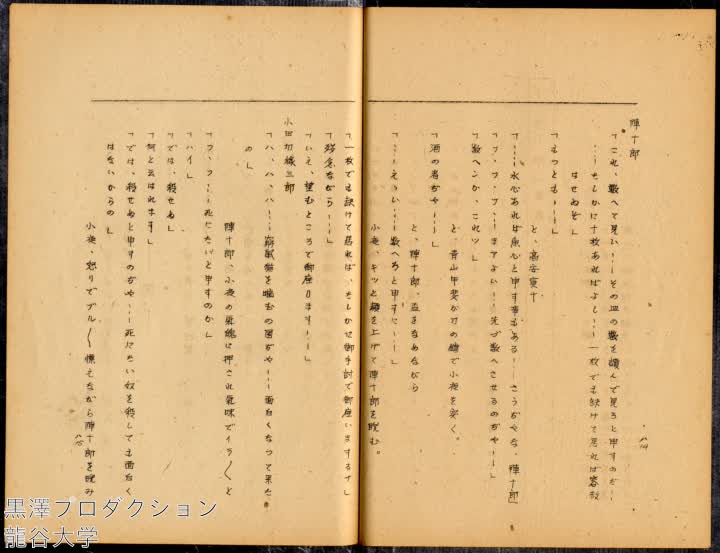 陣十郎
「これ、数へて見い……その皿の数を読んで見ろと申すのだ……
……たしかに十枚あればよし……一枚でも缺けて居れば容赦
はせぬぞ」
「もっとも……」
と、高安寛十
「……水心あれば魚心と申す事もある……さうぢやな、陣十郎」
「フ、フ、フ、……まアよい……先づ数へさせるのぢや……」
「数へンか、これッ」
と、青山甲斐が刀の鐺で小夜を突く。
「酒の肴ぢや……」
と、陣十郎、盃をなめながら
「……えゝい……数へろと申すに……」
小夜、キッと顔を上げて陣十郎を睨む。
八四
「一枚でも缺けて居れば、たしかに御手討で御座いまするナ」
「残念ながら……」
「いえ、望むところで御座ります……」
小田切緘三郎
「ハ、ハ、ハ……窮鼠猫を噛むの図ぢや……面白くなつて来た
の」
陣十郎、小夜の氣魄に押され氣味でイラ〱と
「フ、フ……死にたいと申すのか」
「ハイ」
「では、殺せぬ」
「何と云はれます」
「では、殺せぬと申すのぢや……死にたい奴を殺しても面白く
はないからの」
小夜、怒りでブル〱慄えながら陣十郎を睨み
八五
黒澤プロダクション
龍谷大学